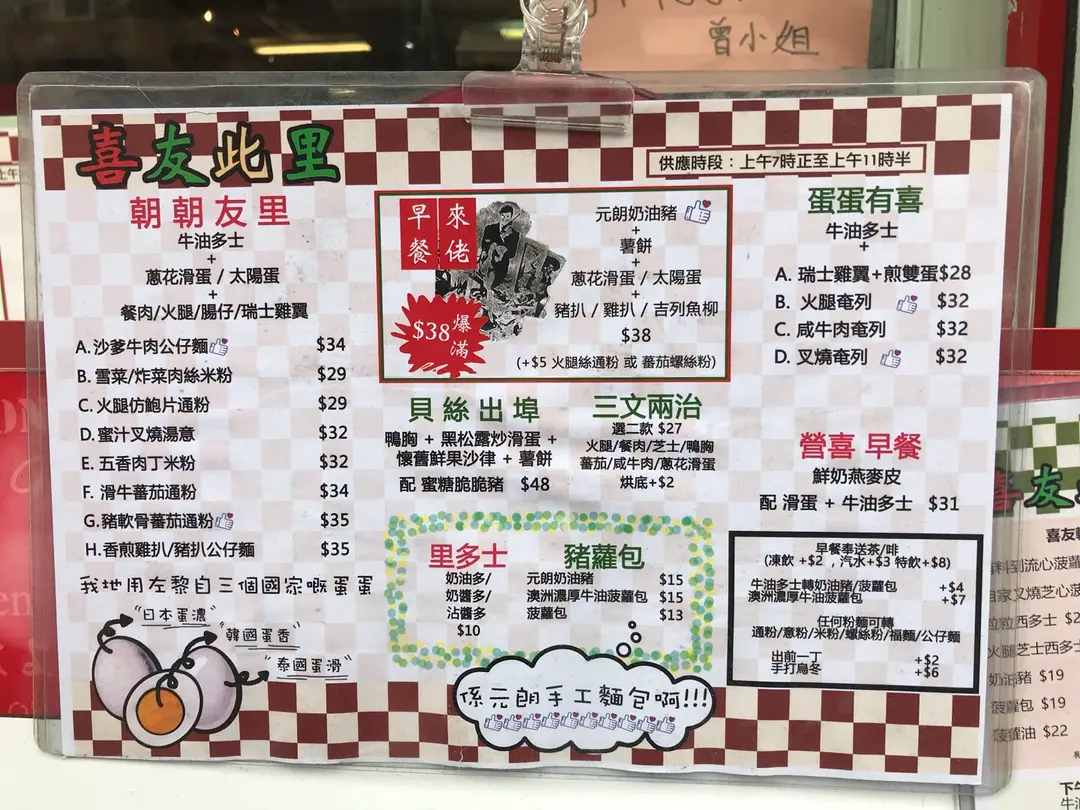 曾小姐
喜友此里
供應時段：上午7時正至上午11時半
朝朝友里
牛油多士
+
蔥花滑蛋 / 太陽蛋
+
餐肉/火腿/腸仔/瑞士雞翼
A.沙爹牛肉公仔麵 $34
B.雪菜/炸菜肉絲米粉 $29
C.火腿仿鮑片通粉 $29
D.蜜汁叉燒湯意 $32
E.五香肉丁米粉 $32
F.滑牛蕃茄通粉 $34
G.豬軟骨蕃茄通粉 $35
H.香煎雞扒/豬扒公仔麵 $35
我地用左黎自三個國家嘅蛋蛋
"日本蛋濃"
"韓國蛋香"
"泰國蛋滑"
來佬
早餐
$38爆滿
元朗奶油豬
+
薯餅
+
蔥花滑蛋 / 太陽蛋
+
豬扒 / 雞扒 / 吉列魚柳
$38
(+$5 火腿絲通粉 或 蕃茄螺絲粉)
貝絲出埠
鴨胸 + 黑松露炒滑蛋 +
懷舊鮮果沙律 + 薯餅
配 蜜糖脆脆豬 $48
三文兩治
選二款 $27
火腿/餐肉/芝士/鴨胸
蕃茄/咸牛肉/蔥花滑蛋
烘底+$2
里多士
奶油多/
奶醬多/
沾醬多
$10
豬蘿包
元朗奶油豬 $15
澳洲濃厚牛油菠蘿包 $15
菠蘿包 $13
係元朗手工麵包啊!!!
蛋蛋有喜
牛油多士
+
A. 瑞士雞翼+煎雙蛋$28
B. 火腿奄列 $32
C. 咸牛肉奄列 $32
D. 叉燒奄列 $32
營喜 早餐
鮮奶燕麥皮
配 滑蛋 + 牛油多士 $31
早餐奉送茶/啡
(凍飲 +$2 , 汽水+$3 特飲+$8)
牛油多士轉奶油豬/菠蘿包 +$4
澳洲濃厚牛油菠蘿包 +$7
任何粉麵可轉
通粉/意粉/米粉/螺絲粉/福麵/公仔麵
出前一丁 +$2
手打烏冬 +$6
喜友
喜友
料到流心菠蘿
自家叉燒芝心菠
西多士 $2
火腿芝士西多士
奶油豬 $19
菠蘿包 $19
菠蘿油 $22
下午
牛油